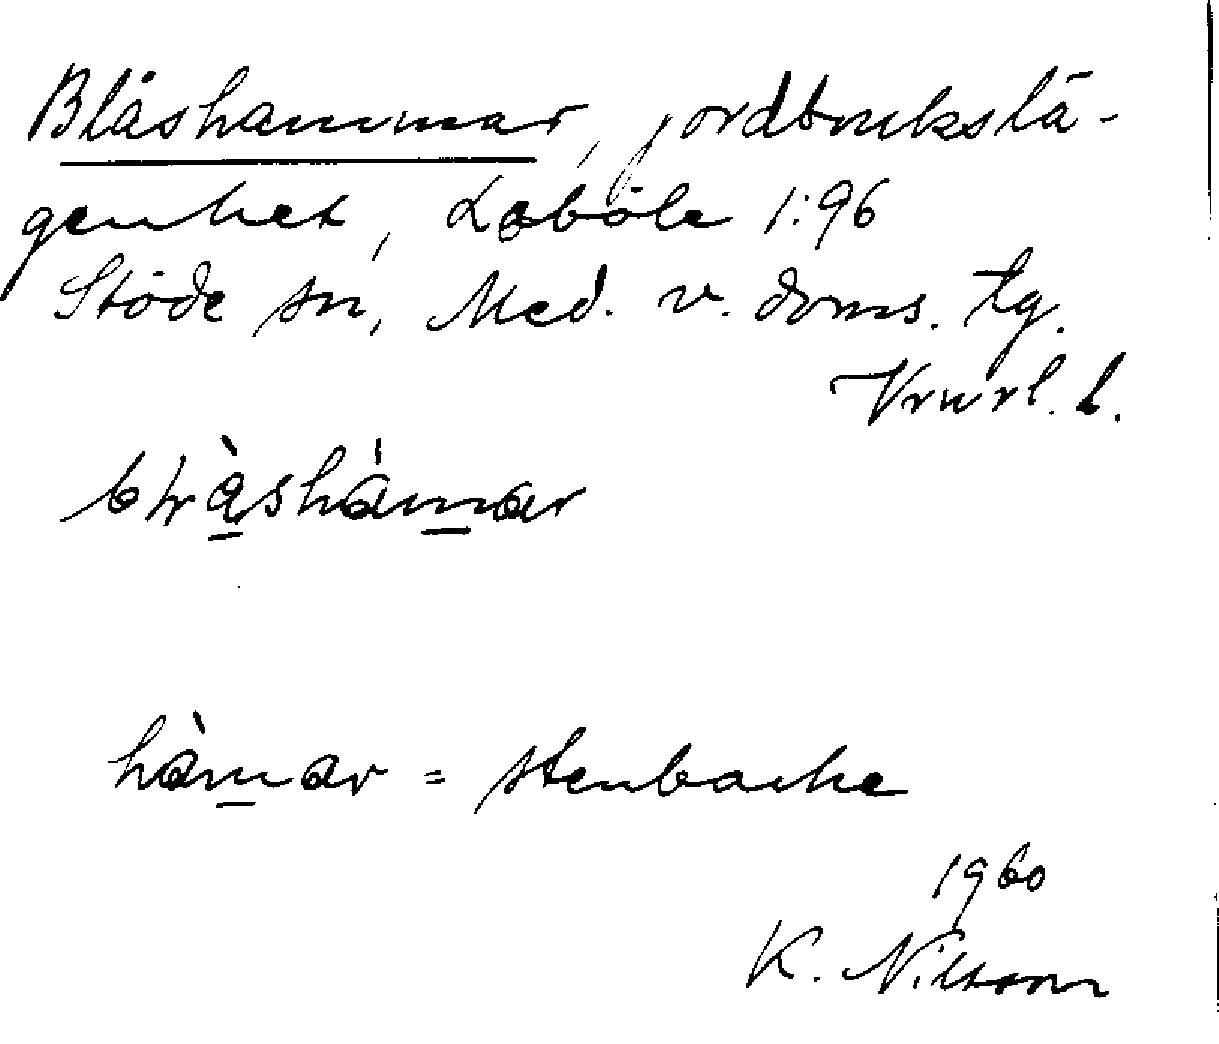 Blåshammar, jordbrukslä-
genhet, Loböle 1:96
Stöde sn, Med. v. doms. tg.
Vrurl. l.
blåshàmar
hàmar = stenbacke
1960
K. Nilsson